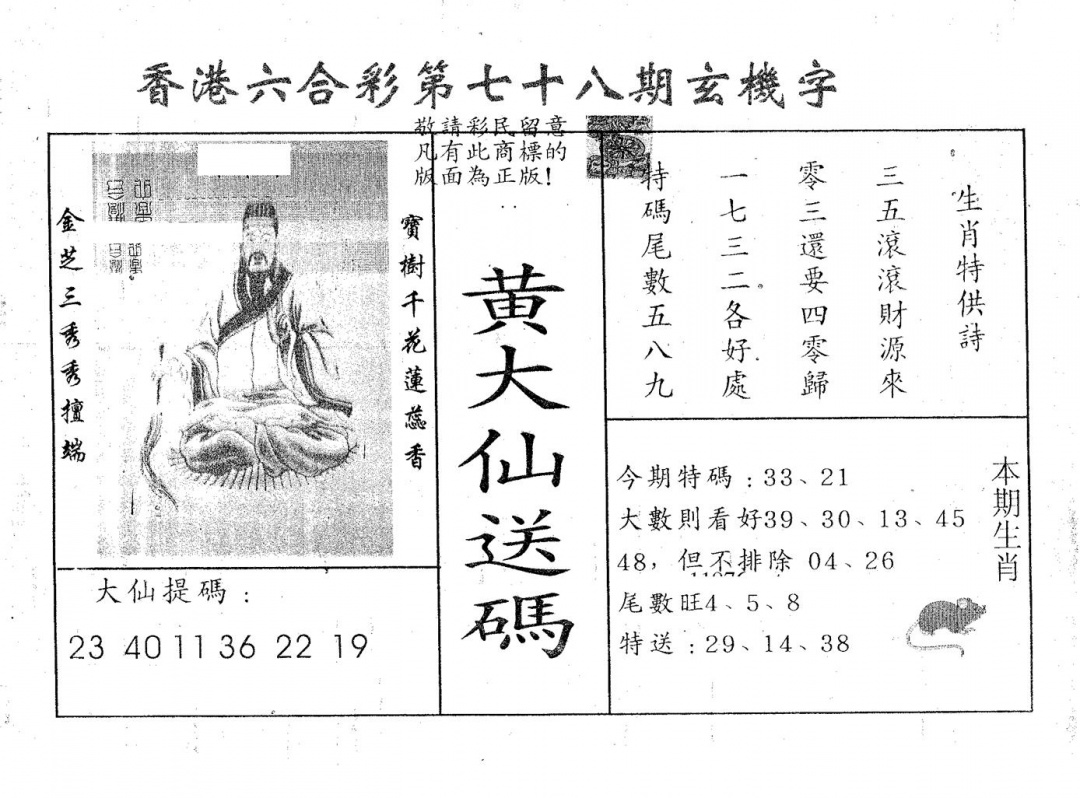 香港六合彩第七十八期玄機字
敬請彩民留意
凡有此商標的
版面為正版!
生肖特供詩
三五滾滾財源來
零三還要四零歸
一七三二各好處
特碼尾數五八九
寶樹千花蓮蕊香
金芝三秀秀擅端
黃大仙送碼
大仙提碼:
23 40 11 36 22 19
本期生肖
今期特碼:33、21
大數則看好39、30、13、45
48，但不排除 04、26
尾數旺4、5、8
特送:29、14、38